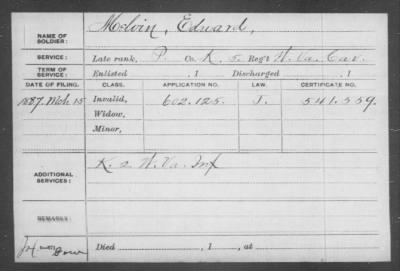 NAME OF SOLDIER: Melvin, Edward,
SERVICE: Late rank, P. Co. K, 5 Reg't W. Va. Cav.
TERM OF SERVICE: Enlisted , 1 Discharged , 1
DATE OF FILING. CLASS. APPLICATION NO. LAW. CERTIFICATE NO.
1887. Mch 15 Invalid, 602.125. J. 541.559.
Widow,
Minor,
ADDITIONAL SERVICES: K. 2 W. Va. Inf
REMARKS:
Died , 1 , at